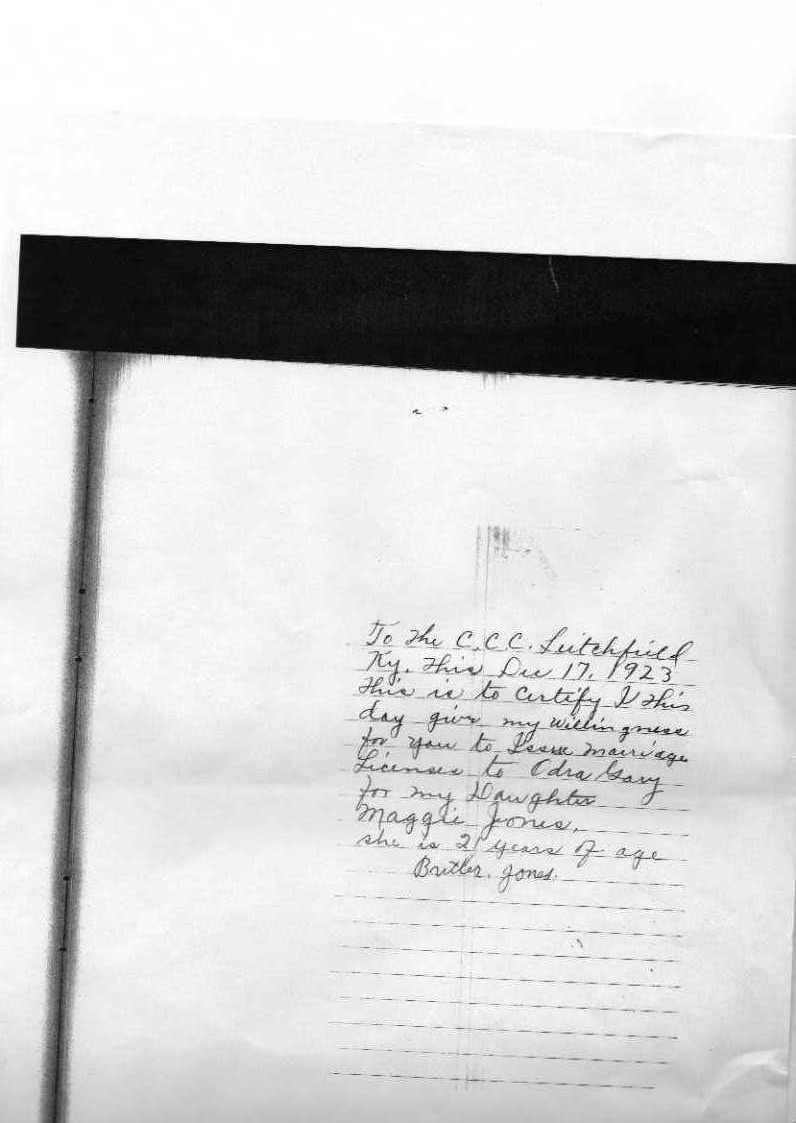 To the C.C.C. Leitchfield
Ky. This Dec 17, 1923
This is to certify I this
day give my willingness
for you to Issue marriage
Licenses to Odra Gary
for my Daughter
Maggie Jones,
she is 21 years of age
Butler. Jones.